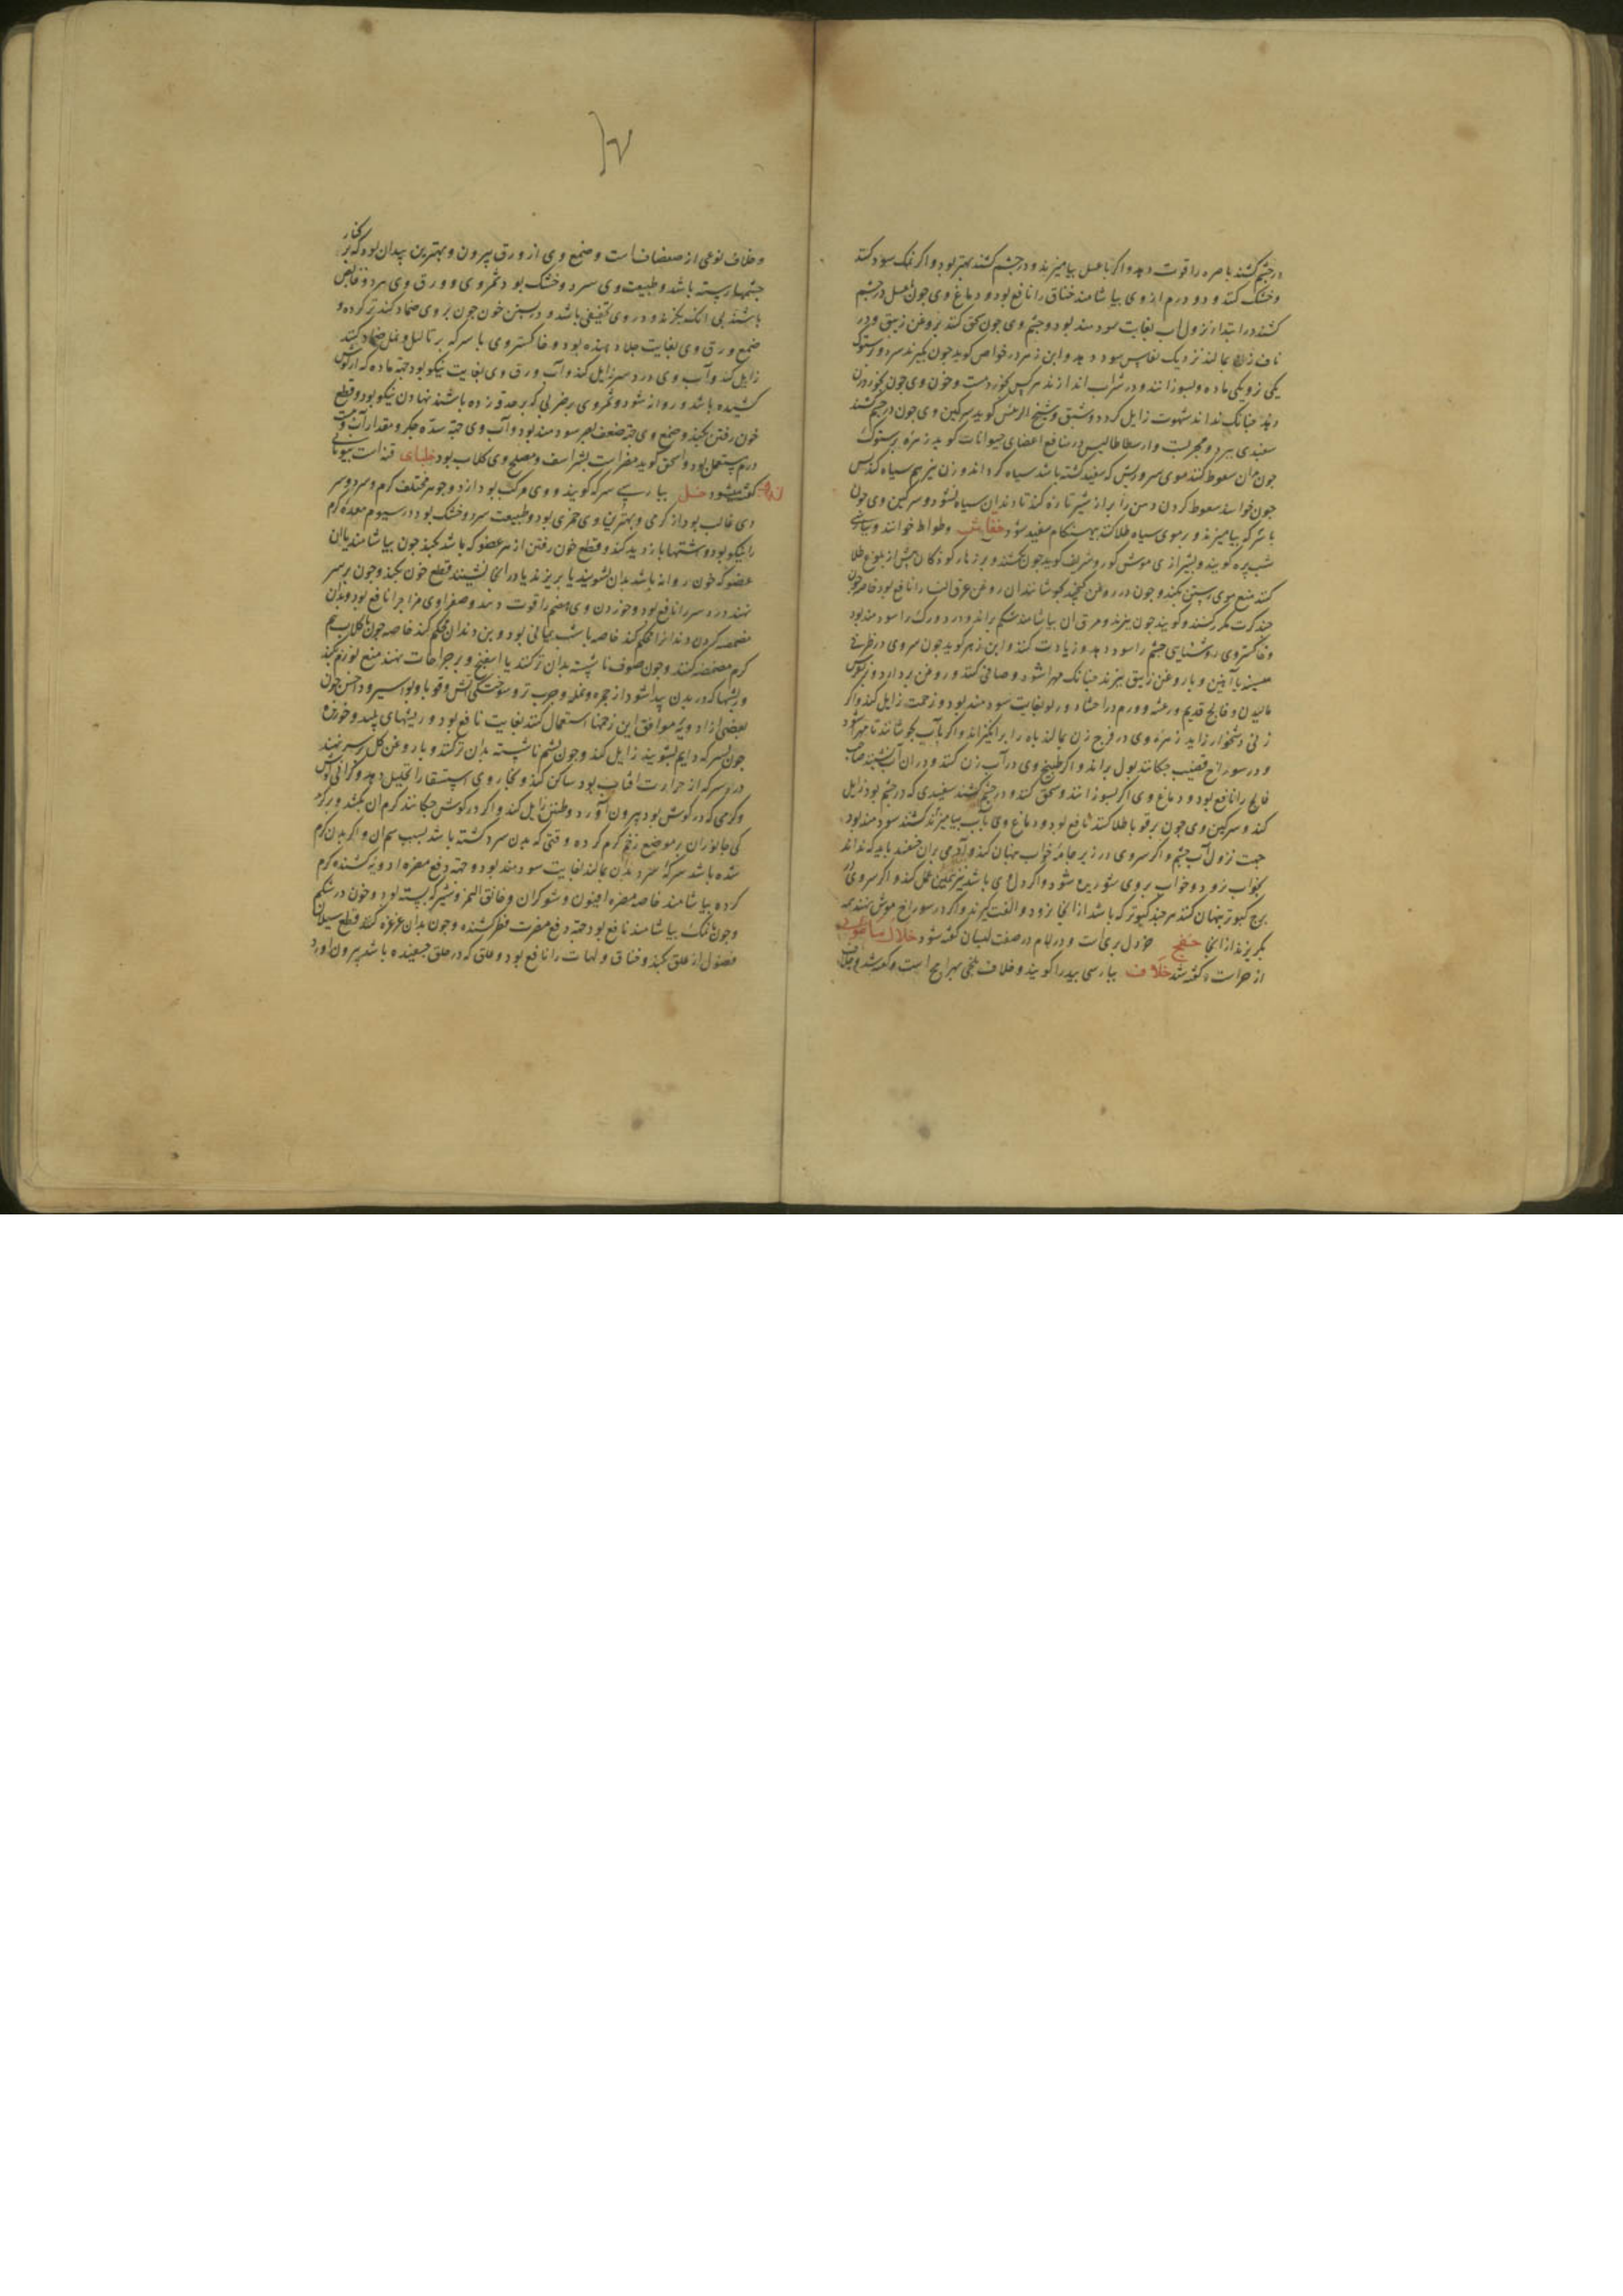 در چشم کشند باصره را قوت دهد و اگر با عسل بیامیزند و در چشم کشند بهتر بود و اگر نمک سود کنند
و خشک کنند و دو درم از وی بیاشامند خناق را نافع بود و دماغ وی چون با عسل در چشم
کشند در ابتداء نزول آب بغایت سودمند بود و چشم وی چون سحق کنند بروغن زنبق و در
ناف زن بمالند نزدیک نفاس سود دهد و ابن زهر در خواص گوید چون بگیرند سر دو پرستوک
یکی نر و یکی ماده و بسوزانند و در شراب اندازند هر کس بخورد مست و خون وی چون بخورد زن
دهند چنانک نداند شهوت زایل کرده و شبق و شیخ الرئیس گوید سرکین وی چون در چشم کشند
سفیدی ببرد و مجربست و ارسطاطالیس در منافع اعضای حیوانات گوید زهره پرستوک
چون بدان سعوط کنند موی سر و ریش که سفید گشته باشد سیاه گرداند و زن نیز هم سیاه کند پس
چون خواهند سعوط کردن دهن را پر از شیر تازه کند تا دندان سیاه نشود و سرکین وی چون
با سرکه بیامیزند و بر موی سیاه طلا کنند بهنگام سفید شود خفاش وطواط خوانند و بپارسی
شب پره گویند و بشیرازی موش کور و شریف گوید چون بکشند و بر زهار کودکان پیش از بلوغ طلا
کنند منع موی رستن بکند و چون در روغن کنجد بجوشانند آن روغن عرق النسا را نافع بود خاصه چون
چند کرت مکرر کنند و گویند چون بپزند و مرق آن بیاشامند شکم براند و درد ورک را سودمند بود
و خاکستر وی روشنایی چشم را سود دهد و زیادت کند و ابن زهر گوید چون سر وی در ظرفی
مسینه یا آهنین و با روغن زنبق بپزند چنانک مهرا شود و صافی کنند و روغن بردارد و نقرس
مالیدن و فالج قدیم و رعشه و ورم در اعضاء و ربو بغایت سودمند بود و زحمت زایل کند و اگر
زنی دشخوار زاید زهره وی در فرج زن بمالند باه را برانگیزاند و اگر بآب بجوشانند تا مهرا شود
و در سوراخ قضیب چکانند بول براند و اگر طبیخ وی در آب زن کنند و در آن آب نشینند صاحب
فالج را نافع بود و دماغ وی اگر بسوزانند و سحق کنند و در چشم کشند سفیدی که در چشم بود زایل
کند و سرکین وی چون بر قوبا طلا کنند نافع بود و دماغ وی بآب بیامیزند کشند سودمند بود
جهت نزول آب چشم و اگر سر وی در زیر جامه خواب پنهان کنند و آدمی بر آن خسبد باید که نداند
بخواب نرود و خواب بر وی شوریده شود و اگر دل وی باشد نیز همین عمل کند و اگر سر وی در
برج کبوتر پنهان کنند هر چند کبوتر که باشد از آنجا نرود و الفت گیرند و اگر در سوراخ موش نهند همه
بگریزند از آنجا خفج خردل بریست و در لام در صفت لبسان گفته شود خلال مامونی
اذخرست و گفته شد خلاف بپارسی بید را گویند و خلاف بلخی بهرامج است و گفته شد
و خلاف نوعی از صفصاف است و صمغ وی از ورق بیرون و بهترین بیدان بود که بر کنار
چشمها رسته باشد و طبیعت وی سرد و خشک بود و ثمر وی و ورق وی سرد و قابض
باشند بی آنک بگزند و در وی تجفیفی باشد و بستن خون چون بر وی ضماد کنند تر کرده و
صمغ ورق وی بغایت جلا دهنده بود و خاکستر وی با سرکه بر ثالیل و نمله ضماد کنند
زایل کند و آب وی درد سر زایل کند و آب ورق وی بغایت نیکو بود جهت ماده که از گوش
کشیده باشد و روانه شود و ثمر وی بر ضربی که بر حدقه زده باشند نهادن نیکو بود و قطع
خون رفتن بکند و صمغ وی جهت ضعف بصر سودمند بود و آب وی جهت سده جگر و مقدار آب
درم مستعمل بود و اسحق گوید مضرست بشراسیف و مصلح وی گلاب بود
گفته شود خل بپارسی سرکه گویند و وی مرکب بود از دو جوهر مختلف گرم و سرد و سردی
وی غالب بود از گرمی و بهترین وی خمری بود و طبیعت سرد و خشک بود در سیوم معده گرم
را نیکو بود و شهوتها باز دید کند و قطع خون رفتن از هر عضو که باشد بکند چون بیاشامند یا آن
عضو که خون روانه باشد بدان بشویند یا بریزند یا در آنجا نشینند قطع خون بکند و چون بر سر
نهند درد سر را نافع بود و خوردن وی هضم را قوت دهد و صفراوی مزاج را نافع بود و بدان
مضمضه کردن دندان را محکم کند خاصه با شب یمانی بود و بن دندان محکم کند خاصه چون با گلاب هم
گرم مضمضه کنند و چون صوف ناشسته بدان تر کنند یا اسفنج و بر جراحات نهند منع تورم بکند
و ریشها که در بدن پیدا شود از جمره و نمله و جرب تر و سوختگی آتش و قوبا و بواسیر و داحس چون
بعضی از ادویه موافق این زحمتها استعمال کنند بغایت نافع بود و ریشهای پلید و خورنده
چون بسرکه دایم بشویند زایل کند و چون پشم ناشسته بدان تر کنند و با روغن گل بر سر نهند
درد سر که از حرارت آفتاب بود ساکن کند و بخار وی استسقا را تحلیل دهد و گرانی گوش
و کرمی که در گوش بود بیرون آورد و طنین زایل کند و اگر در گوش چکانند کرم آن بکشد و بر گزیدگی
کی جانوران بر موضع زخم گرم کرده وقتی که بدن سرد گشته باشد بسبب سم آن و اگر بدن گرم
شده باشد سرکه سرد بدان بمالند بغایت سودمند بود و جهت دفع مضرت ادویه کشنده گرم
کرده بیاشامند خاصه مضرت افیون و شوکران و خانق النمر و شیر که بسته بود و خون در شکم
و چون با نمک بیاشامند نافع بود جهت دفع مضرت فطر کشنده و چون بدان غرغره کنند قطع سیلان
فضول از حلق بکند و خناق و لهات را نافع بود و علق که در حلق چسبیده باشد بیرون آورد